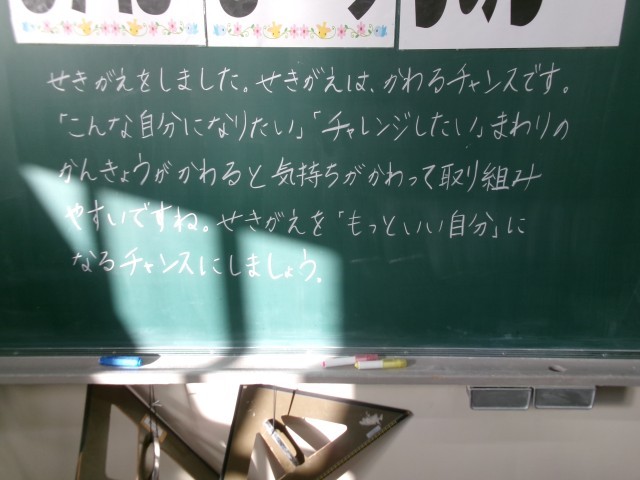 せきがえをしました。せきがえは、かわるチャンスです。
「こんな自分になりたい」「チャレンジしたい」まわりの
かんきょうがかわると気持ちがかわって取り組み
やすいですね。せきがえを「もっといい自分」に
なるチャンスにしましょう。